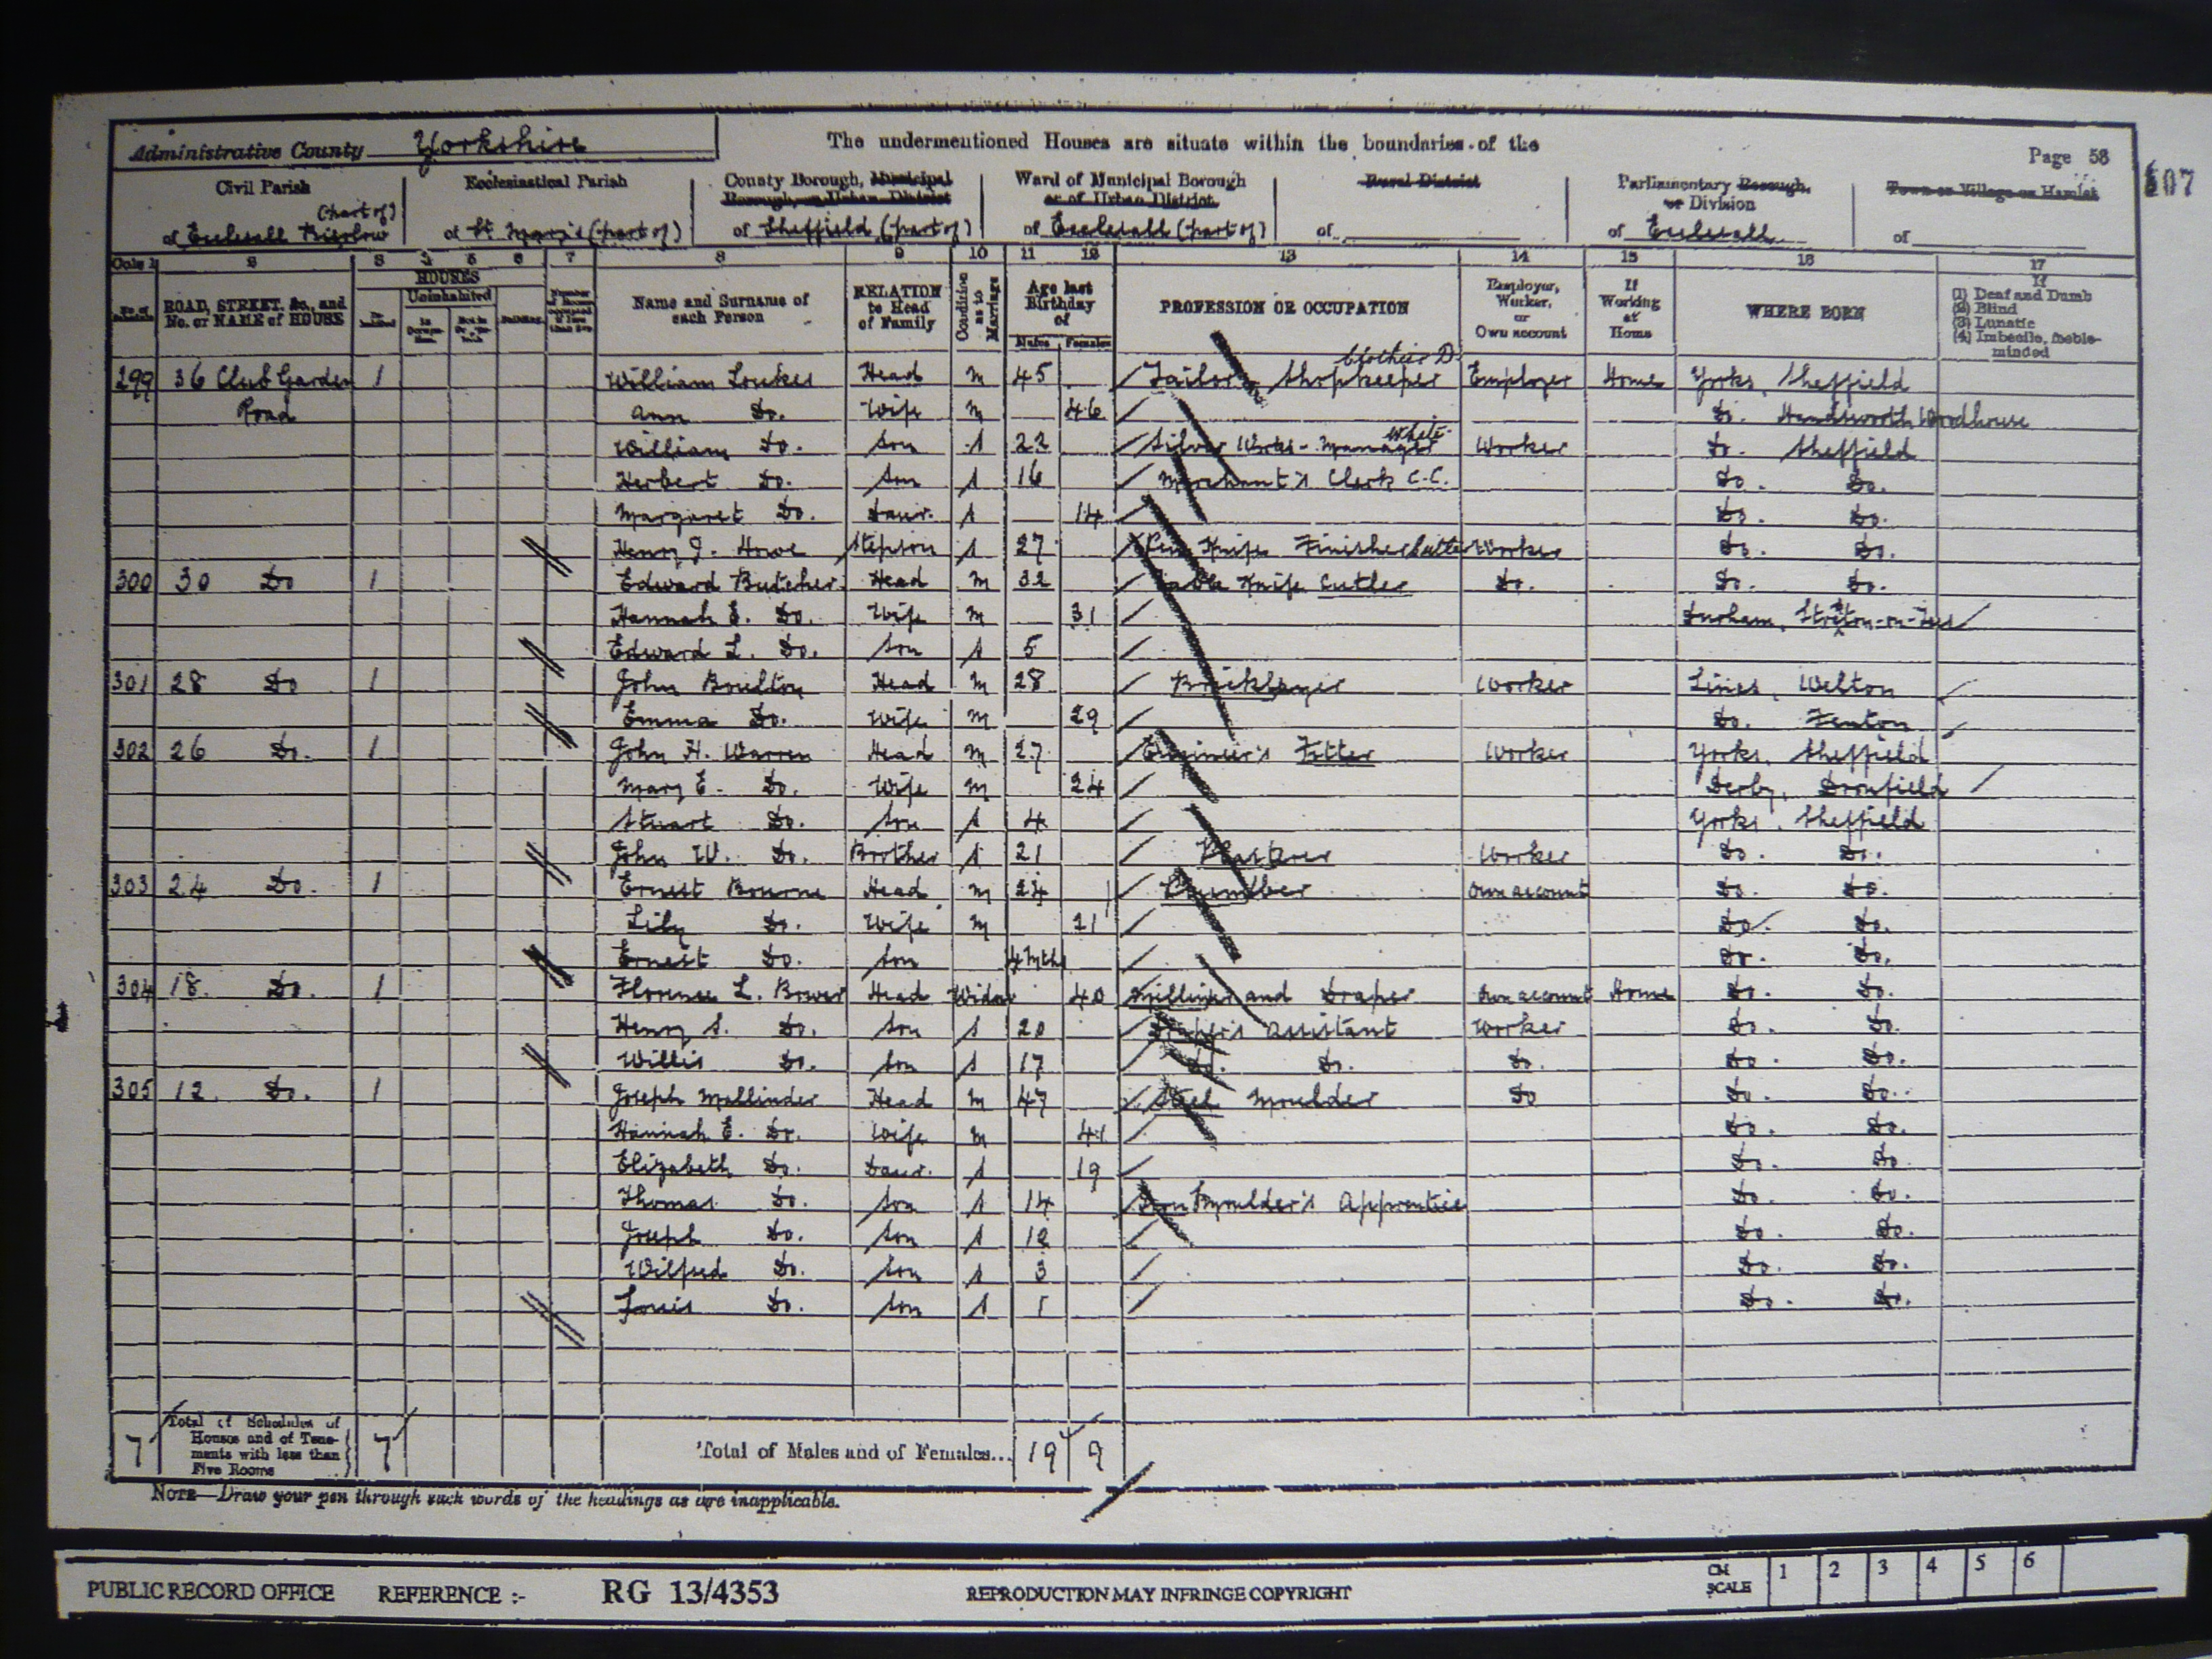 Administrative County Yorkshire
The undermentioned Houses are situate within the boundaries of the
Page 58
607
Civil Parish
Ecclesiastical Parish
County Borough, Municipal Borough, or Urban District
Ward of Municipal Borough or of Urban District
Rural District
Parliamentary Borough or Division
Town or Village or Hamlet
of Ecclesall Bierlow (part of)
of St. Mary's (part of)
of Sheffield (part of)
of Ecclesall (part of)
of
of Ecclesall
of
Cols 1 2 3 4 5 6 7 8 9 10 11 12 13 14 15 16 17
No. of Schedule
ROAD, STREET, &c., and No. or NAME of HOUSE
HOUSES
Uninhabited
Building
Name and Surname of each Person
RELATION to Head of Family
Condition as to Marriage
Age last Birthday of
Males Females
PROFESSION OR OCCUPATION
Employer, Worker, or Own account
If Working at Home
WHERE BORN
If
(1) Deaf and Dumb
(2) Blind
(3) Lunatic
(4) Imbecile, feeble-minded
299 36 Club Garden 1 William Head M 45 Tailor Shopkeeper clothier D Employer Home Yorks, Sheffield
Road Ann Do. Wife M 46 Do. Handsworth Woodhouse
William Do. Son S 22 Silver White Manager Worker Do. Sheffield
Herbert Do. Son S 16 Merchant's Clerk C.C. Do. Do.
Margaret Do. Daur. S 14 Do. Do.
Henry J. Howe Stepson S 27 Pen Knife Finisher Cutler Worker Do. Do.
300 30 Do 1 Edward Butcher Head M 32 Table Knife Cutler Do. Do. Do.
Hannah E. Do. Wife M 31 Durham, Stockton-on-Tees
Edward L. Do. Son S 5
301 28 Do 1 John Boulton Head M 28 Bricklayer Worker Lincs, Welton
Emma Do. Wife M 29 Do. Fenton
302 26 Do. 1 John H. Warren Head M 27 Engineer's Fitter Worker Yorks, Sheffield
Mary E. Do. Wife M 24 Derby, Dronfield
Stuart Do. Son S 4 Yorks, Sheffield
John W. Do. Brother S 21 Worker Do. Do.
303 24 Do. 1 Ernest Bourne Head M 24 Plumber Own account Do. Do.
Lily Do. Wife M 21 Do. Do.
Ernest Do. Son 4 mths Do. Do.
304 18 Do. 1 Florence L. Bower Head Widow 40 Milliner and Draper Own account Home Do. Do.
Henry S. Do. Son S 20 Draper's Assistant Worker Do. Do.
Willis Do. Son S 17 Do. Do. Do. Do. Do.
305 12 Do. 1 Joseph Mallinder Head M 47 Steel Moulder Do Do. Do.
Hannah E. Do. Wife M 41 Do. Do.
Elizabeth Do. Daur. S 19 Do. Do.
Thomas Do. Son S 14 Iron Moulder's Apprentice Do. Do.
Joseph Do. Son S 12 Do. Do.
Wilfred Do. Son S 3 Do. Do.
Louis Do. Son S 1 Do. Do.
7 Total of Schedules of Houses and of Tenements with less than Five Rooms 7 Total of Males and of Females... 19 9
NOTE—Draw your pen through such words of the headings as are inapplicable.
PUBLIC RECORD OFFICE REFERENCE :- RG 13/4353 REPRODUCTION MAY INFRINGE COPYRIGHT CM SCALE 1 2 3 4 5 6